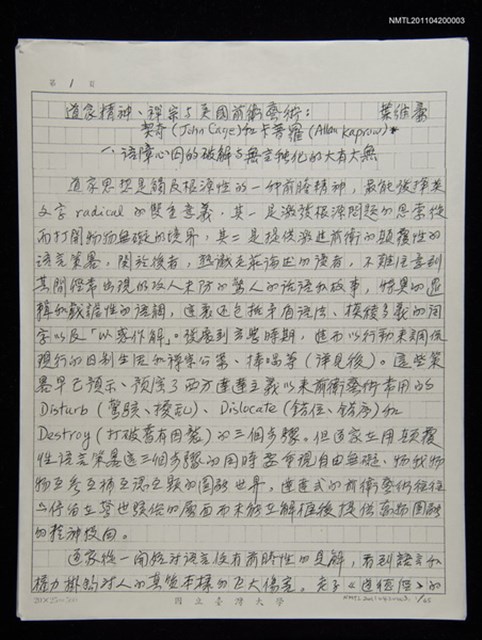 NMTL201104200003
第 1 頁
道家精神、禪宗与美國前衛藝術： 葉維廉
契奇(John Cage)和卡普羅(Allan Kaprow)*
一、語障心囚的破解与無言独化的大有大無
道家思想是觸及根源性的一种前瞻精神，最能發揮英
文字 radical 的雙重意義，其一是激發根源問題的思索從
而打開物物無礙的境界，其二是提供激進前衛的顛覆性的
語言策略。關於後者，熟識老莊論述的讀者，不難注意到
其間經常出現的攻人未防的驚人的話語和故事，特異的邏
輯和戲謔性的語調，這還包括矛盾語法、模稜多義的詞
字以及「以惑作解」。發展到玄學時期，進而以行動來調侃
現行的日制生活和禪宗公案、棒喝等（詳見後）。這些策
略早已預示、預演了西方達達主義以來前衛藝術常用的
Disturb (驚駭、擾乱)、Dislocate (錯位、錯序)和
Destroy (打破舊有因襲)的三個步驟。但道家在用顛覆
性語言策略這三個步驟的同時是重視自由無礙、物我物
物互參互補互認互顯的圓融世界，達達式的前衛藝術往往
只停留在驚世駭俗的層面而未能在解框後提供
的精神投向。
道家從一開始对語言便有前瞻性的見解，看到語言和
權力掛鈎对人的真質本樣的巨大傷害，老子《道德經》的
20X25=500
國立臺灣大學